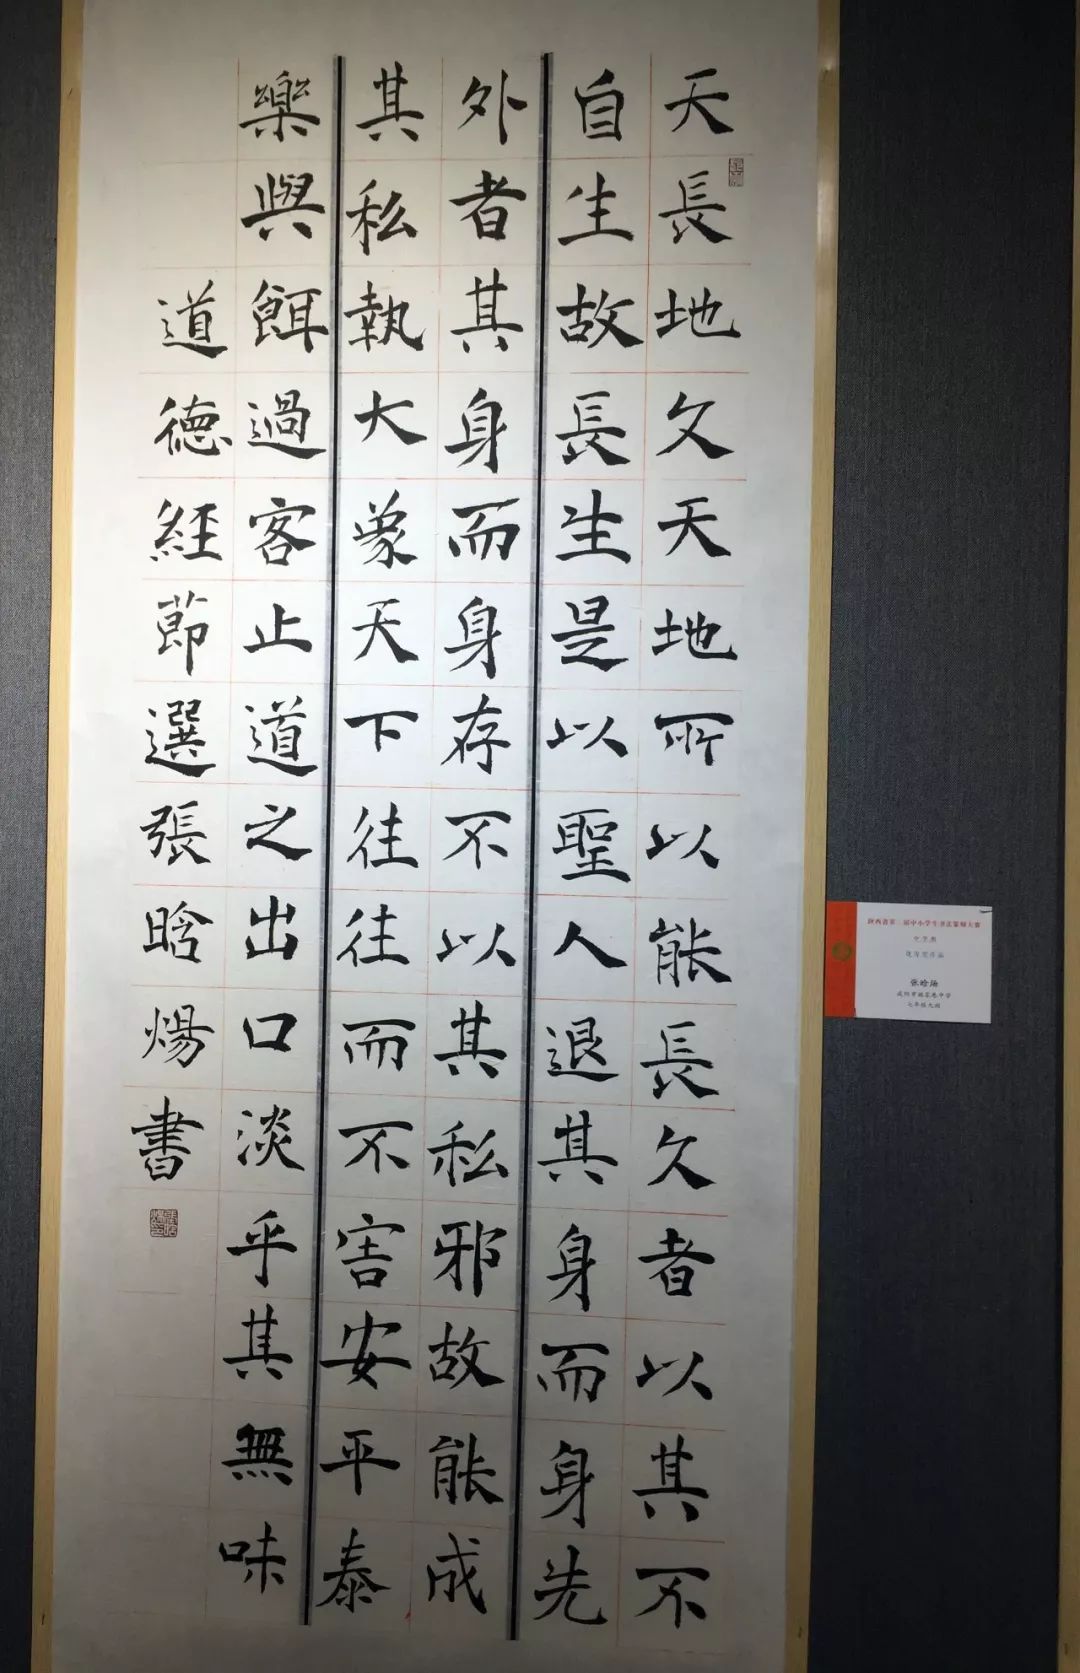 天長地久天地所以能長久者以其不
自生故長生是以聖人退其身而身先
外者其身而身存不以其私邪故能成
其私執大象天下往往而不害安平泰
樂與餌過客止道之出口淡乎其無味
道德經節選張晗煬書
陕西省第二届中小学生书法篆刻大赛
张晗炀
七年级九班